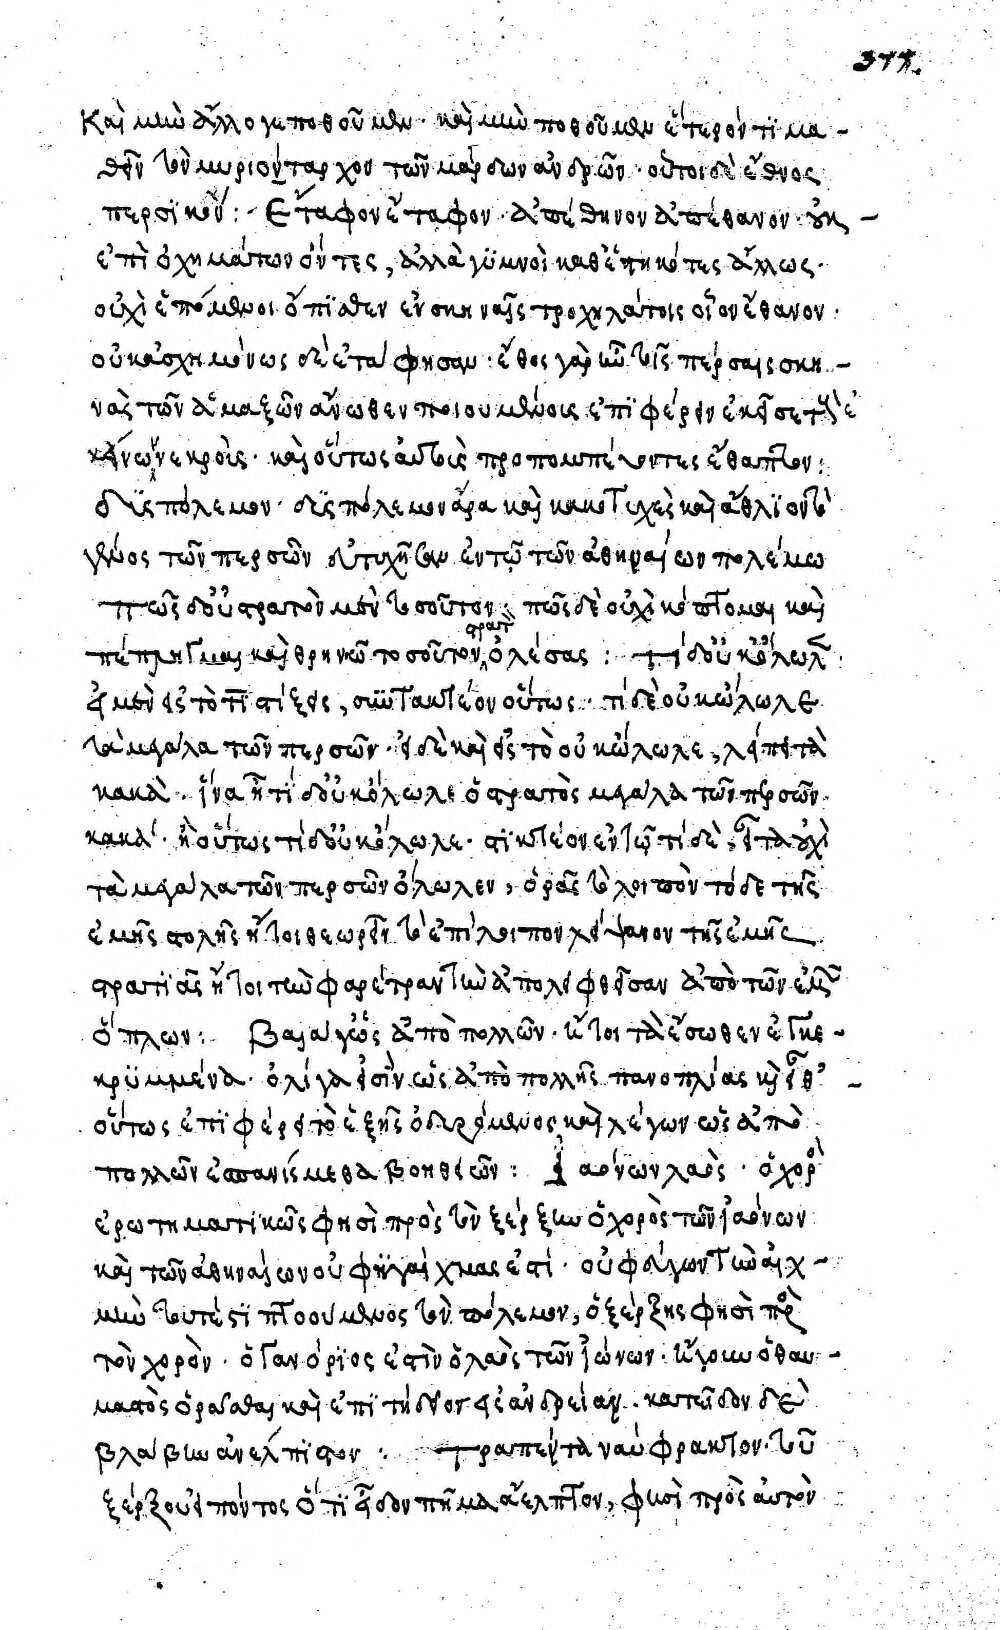 377.
Καὶ μὴν ἄλλο γε ποθοῦμεν· καὶ μὴν ποθοῦμεν ἕτερόν τι μα-
θεῖν τὸν μυριόνταρχον τῶν μάρδων ἀνδρῶν· οὗτοι δὲ ἔθνος
περσικόν: Ἔταφον ἔταφον· ἀπέθηνον ἀπέθανον· οὐκ
ἐπὶ ὀχημάτων ὄντες, ἀλλὰ γυμνοὶ καθεστηκότες ἄλλως·
οὐχὶ ἑπόμενοι ὄπιθεν ἐν σκηναῖς τροχηλάτοις οἷον ἔθανον·
οὐκ ἀσχημόνως δὲ ἐτάφησαν· ἔθος γὰρ ἦν τοῖς πέρσαις σκη-
νὰς τῶν ἁμαξῶν ἄνωθεν ποιουμένοις ἐπιφέρειν ἐκεῖσε τοὺς ἐ
κείνων νεκροὺς· καὶ οὕτως αὐτοὺς προπομπεύοντες ἔθαπτον:
δὶς πόλεμον· δὶς πόλεμον ἄρα καὶ κακοτυχὲς καὶ ἄθλιον τὸ
γένος τῶν περσῶν δυτυχῆσαν ἐν τῷ τῶν ἀθηναίων πολέμω
πῶς δ' οὐ στρατὸν μὲν τοσοῦτον: πῶς δὲ οὐχὶ κόπτομαι καὶ
πέπληγμαι καὶ θρηνῶ τοσοῦτον στρατὸν ὀλέσας: τί δ' οὐκ ὄλωλεν:
εἰ μὲν εἰς τὸ τί στίξεις, συντακτέον οὕτως· τί δὲ οὐκ ὤλωλε
τὰ μεγάλα τῶν περσῶν· εἰ δὲ καὶ εἰς τὸ οὐκ ὤλωλε, λείπει τὰ
κακὰ· ἵνα ᾖ τί δ' οὐκ ὄλωλε ὁ στρατὸς μεγάλα τῶν περσῶν
κακά· ἢ οὕτως τί δ' οὐκ ὄλωλε· στικτέον ἐν τῷ τί δὲ, εἶτα οὐχὶ
τὰ μεγάλα τῶν περσῶν ὄλωλεν, ὁρᾷς τὸ λοιπὸν τόδε τῆς
ἐμῆς στολῆς ἤτοι θεωρεῖς τὸ ἐπίλοιπον λείψανον τῆς ἐμῆς
στρατιᾶς ἤτοι τὴν φαρέτραν τὴν ἀπολειφθεῖσαν ἀπὸ τῶν ἐμῶν
ὅπλων: Βαιά γ' ὡς ἀπὸ πολλῶν· ἤτοι τὰ ἔσωθεν ἐγκε-
κρυμμένα· ὀλίγα εἰσὶν ὡς ἀπὸ πολλῆς πανοπλίας καὶ εἶθ'
οὕτως ἐπιφέρει τὸ ἑξῆς ὀδυρόμενος καὶ λέγων ὡς ἀπὸ
πολλῶν ἐσπανίσμεθα βοηθειῶν: Ἰαόνων λαὸς· ὁ χορὸς
ἐρωτηματικῶς φησὶ πρὸς τὸν ξέρξην ὁ χορὸς τῶν ἰαόνων
καὶ τῶν ἀθηναίων οὐ φυγαίχμας ἐστί· οὐ φεύγων τὴν αἰχ-
μὴν τουτέστι πτοούμενος τὸν πόλεμον, ὁ ξέρξης φησὶ πρὸς
τὸν χορὸν· ὀγανόρειος ἐστὶν ὁ λαὸς τῶν ἰώνων· ἤγουν ὁ θαυ-
μαστὸς ὁρᾶσθαι καὶ ἐπὶ τῇ δυνάμει ἀνδρείαν· κατεῖδον δὲ
βλάβην ἀνέλπιστον: Τραπέντα ναύφρακτον· τοῦ
ξέρξου εἰπόντος ὅτι εἶδον πῆμα ἄελπτον, φησὶ πρὸς αὐτὸν